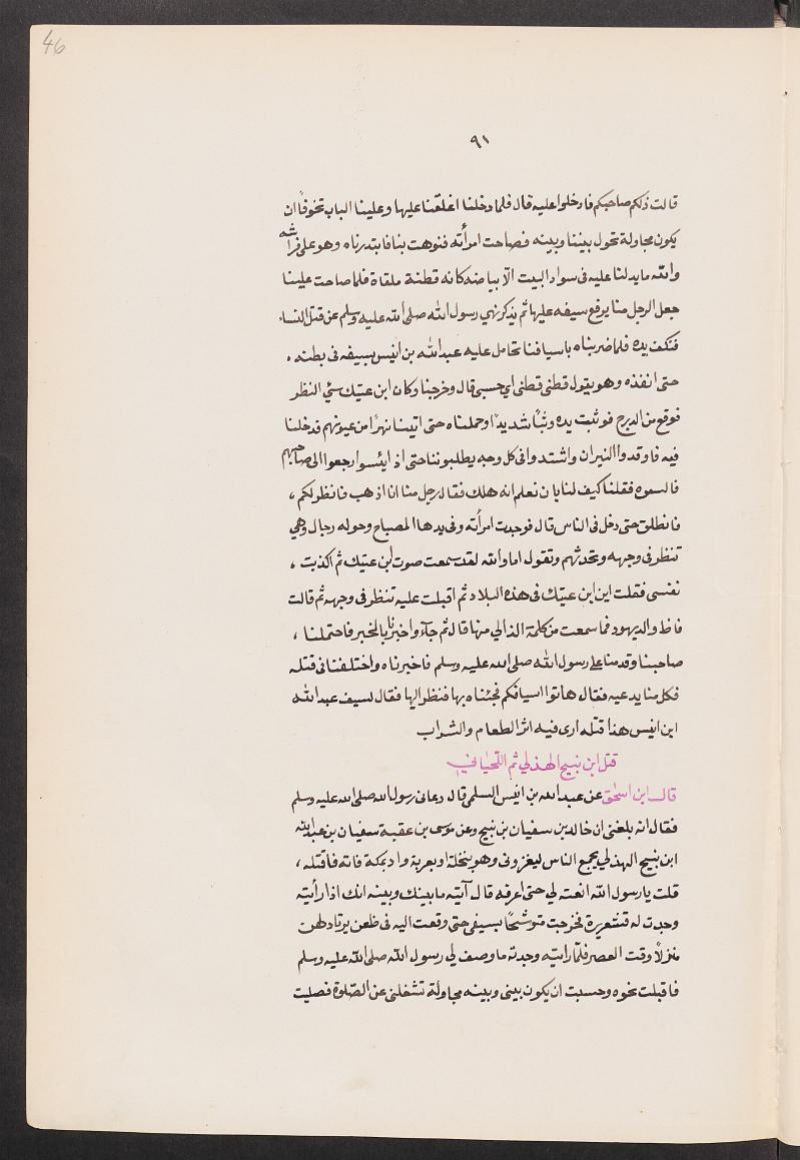 46
٩١
قالت ذلكم صاحبكم فادخلوا عليه قال فلما دخلنا اغلقنا عليها وعلينا الباب تخوفاً ان
يكون مجاولة تحول بيننا وبينه فصاحت امرأته فنوهت بنا فابتدرناه وهو على فراشه
والله ما يدلنا عليه فى سواد البيت الا بياضه كانه قطنة ملقاة فلما صاحت علينا
جعل الرجل منا يرفع سيفه عليها ثم يذكر نهي رسول الله صلى الله عليه وسلم عن قتل النساء
فتكف يده فلما ضربناه باسيافنا تحامل عليه عبد الله بن انيس بسيفه فى بطنه ،
حتى انفذه وهو يقول قطنى قطنى اي حسبى قال وخرجنا وكان ابن عتيك سئ النظر
فوقع من الدرج فوثبت يده وثباً شديداً وحملناه حتى اتينا نهراً من عيونهم فدخلنا
فيه فاوقدوا النيران واشتدوا فى كل وجه يطلبوننا حتى اذ ايئسوا رجعوا الى صاحبهم
فقلنا كيف لنا بان نعلم انه هلك فقال رجل منا انا اذهب فانظر لكم ،
فانطلق حتى دخل فى الناس قال فوجدت امرأته وفى يدها المصباح وحوله رجال وهي
تنظر فى وجهه وتحدثهم وتقول اما والله لقد سمعت صوت ابن عتيك ثم اكذبت ،
نفسى فقلت اين ابن عتيك فى هذه البلاد ثم اقبلت عليه تنظر فى وجهه ثم قالت
فاظ واله يهود فما سمعت من كلمة الذ الي منها قال ثم جآء واخبرنا بالخبر فاحتملنا ،
صاحبنا وقدمنا على رسول الله صلى الله عليه وسلم فاخبرناه واختلفنا فى قتله
فكل منا يدعيه فقال هاتوا اسيافكم نجئناه بها فنظر اليها فقال لسيف عبد الله
ابن انيس هذا قتله ارى فيه اثر الطعام والشراب
قتل ابن نبيح الهذلي ثم اللحياني
قال ابن اسحٰق عن عبد الله بن انيس السلمى قال دعانى رسول الله صلى الله عليه وسلم
فقال انه بلغنى ان خالد بن سفيان بن نبيح وعن موسى بن عقبة سفيان بن عبد الله
ابن نبيح الهذلي يجمع الناس ليغزونى وهو بنخلة او بعرنة واد بمكة فاته فاقتله ،
قلت يارسول الله انعته لي حتى اعرفه قال آيته ما بينك وبينه انك اذا رأيته
وجدت له قشعريرة فخرجت متوشحاً بسيفى حتى وقعت اليه فى ظعن يرتاد لهن
منزلاً وقت العصر فلما رايته وجدته ما وصف لي رسول الله صلى الله عليه وسلم
فاقبلت نحوه وحسبت ان يكون بينى وبينه مجاولة تشغلنى عن الصلوة فصليت